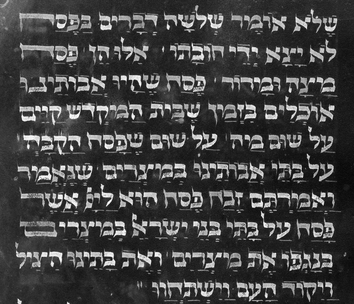 שלא אומיר שלשה דברים בפסח
לא יצא ידי חובתו אלו הן פסח
מיצה ומירור פסח שהיו אבותינו
אוכלים בזמן שבית המוקדש קיים
על שום מיה על שום שפסח הקבה
על בתי אבותינו במיצרים שנאמיר
ואמירתם זבח פסח הוא ליי אשר
פסח על בתי בני ישראל במיצרים
בנגפו את מיצרים ואת בתינו היציל
ויקוד העם וישתחוו